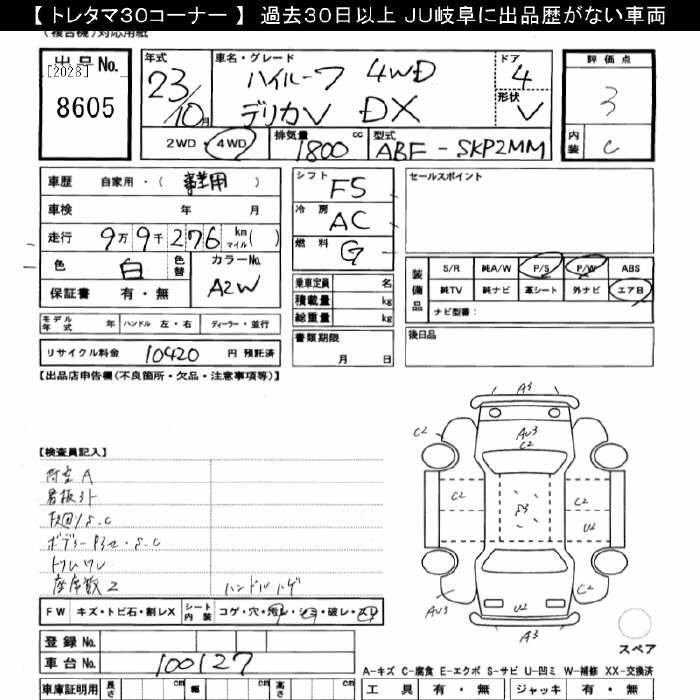 【 トレタマ30コーナー 】 過去30日以上 JU岐阜に出品歴がない車両
(複合機)対応用紙
出品No.
[2028]
8605
年式
23/10月
車名・グレード
ハイルーフ 4WD
デリカV DX
ドア
4
形状
V
評価点
3
内装
C
2WD・4WD
排気量
1800 cc
型式
ABF-SKP2MM
車歴 自家用・( 事業用 )
車検 年 月
走行 9万9千276 km マイル( )
色 白 色替
カラーNo.
A2W
保証書 有・無
シフト
F5
冷房
AC
燃料
G
乗車定員 名
積載量 kg
総重量 kg
セールスポイント
装備品
S/R 純A/W P/S P/W ABS
純TV 純ナビ 革シート 外ナビ エアB
ナビ型番:
モデル年式 年 ハンドル 左・右 ディーラー・並行
リサイクル料金 10420 円 預託済
書類期限
月 日
後日品
【出品店申告欄(不良箇所・欠品・注意事項等)】
【検査員記入】
荷室A
看板ｽﾄ
ﾄﾘﾑﾜﾚ
座席数2 ハンドルハゲ
FW キズ・トビ石・割レX シート内装 コゲ・穴・汚レ・シミ・破レ・スレ
登録No.
車台No. 100127
車庫証明用 長さ cm 幅 cm 高さ cm
A3
C2
AU3
C2
C2
C2
C2
S3
U2
AU3
U2
C2
A3
スペア
A-キズ C-腐食 E-エクボ S-サビ U-凹ミ W-補修 XX-交換済
工具 有・無 ジャッキ 有・無